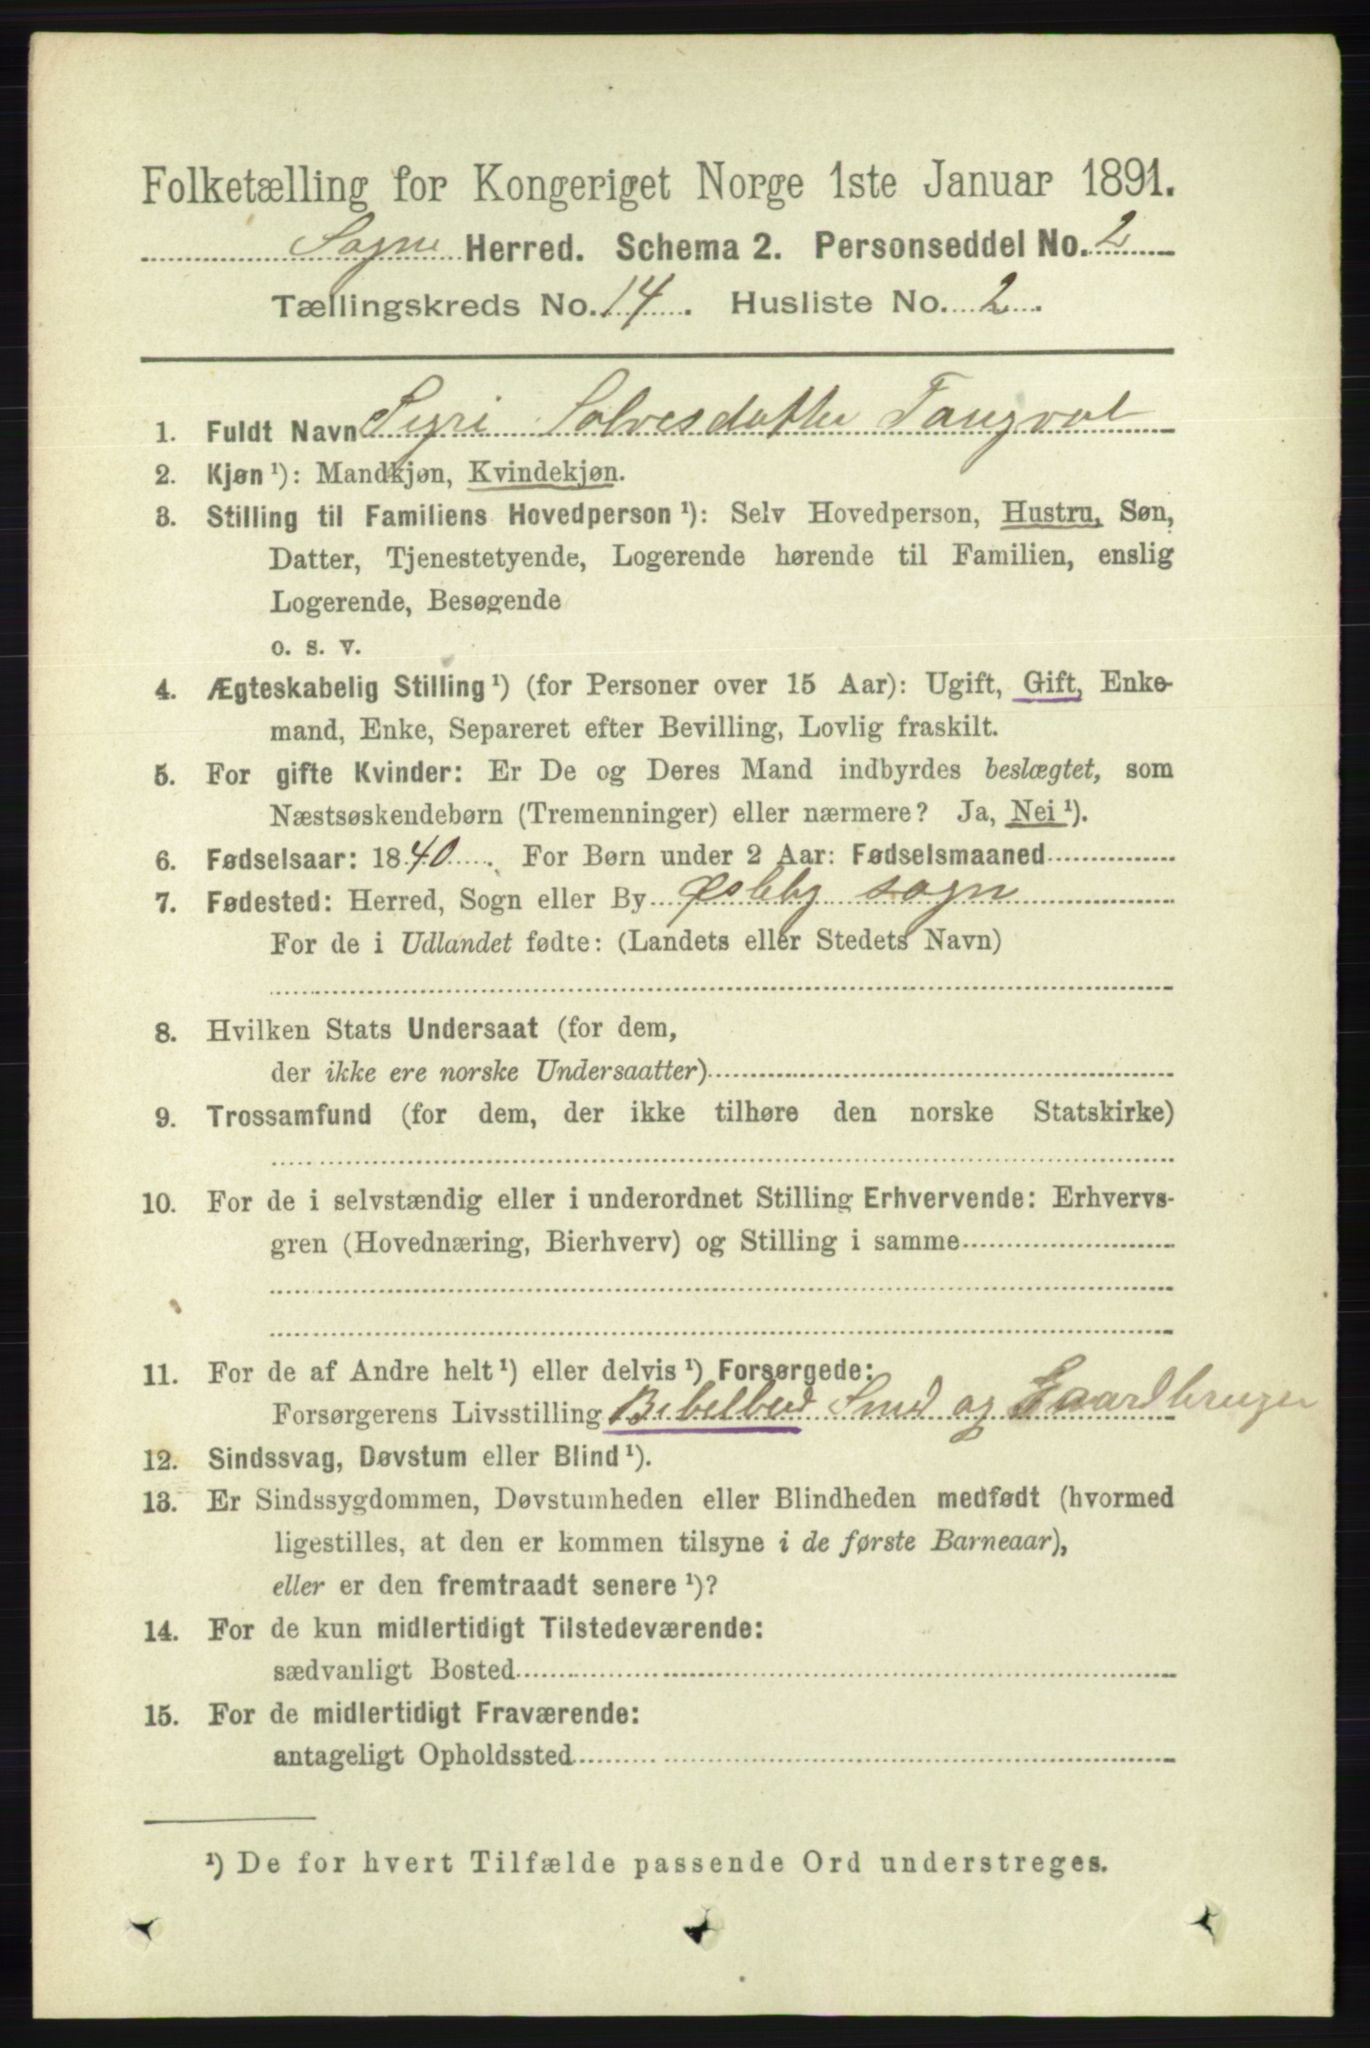 Folketælling for Kongeriget Norge 1ste Januar 1891.
Søgne Herred. Schema 2. Personseddel No. 2
Tællingskreds No. 14. Husliste No. 2.
1. Fuldt Navn Syri Solvesdatter Tangval
2. Kjøn ¹): Mandkjøn, Kvindekjøn.
3. Stilling til Familiens Hovedperson ¹): Selv Hovedperson, Hustru, Søn,
Datter, Tjenestetyende, Logerende hørende til Familien, enslig
Logerende, Besøgende
o. s. v.
4. Ægteskabelig Stilling ¹) (for Personer over 15 Aar): Ugift, Gift, Enke-
mand, Enke, Separeret efter Bevilling, Lovlig fraskilt.
5. For gifte Kvinder: Er De og Deres Mand indbyrdes beslægtet, som
Næstsøskendebørn (Tremenninger) eller nærmere? Ja, Nei ¹).
6. Fødselsaar: 1840. For Børn under 2 Aar: Fødselsmaaned
7. Fødested: Herred, Sogn eller By Øsleby sogn
For de i Udlandet fødte: (Landets eller Stedets Navn)
8. Hvilken Stats Undersaat (for dem,
der ikke ere norske Undersaatter)
9. Trossamfund (for dem, der ikke tilhøre den norske Statskirke)
10. For de i selvstændig eller i underordnet Stilling Erhvervende: Erhvervs-
gren (Hovednæring, Bierhverv) og Stilling i samme
11. For de af Andre helt ¹) eller delvis ¹) Forsørgede:
Forsørgerens Livsstilling Bibelbud Smed og Gaardbruger
12. Sindssvag, Døvstum eller Blind ¹).
13. Er Sindssygdommen, Døvstumheden eller Blindheden medfødt (hvormed
ligestilles, at den er kommen tilsyne i de første Barneaar),
eller er den fremtraadt senere ¹)?
14. For de kun midlertidigt Tilstedeværende:
sædvanligt Bosted
15. For de midlertidigt Fraværende:
antageligt Opholdssted
¹) De for hvert Tilfælde passende Ord understreges.